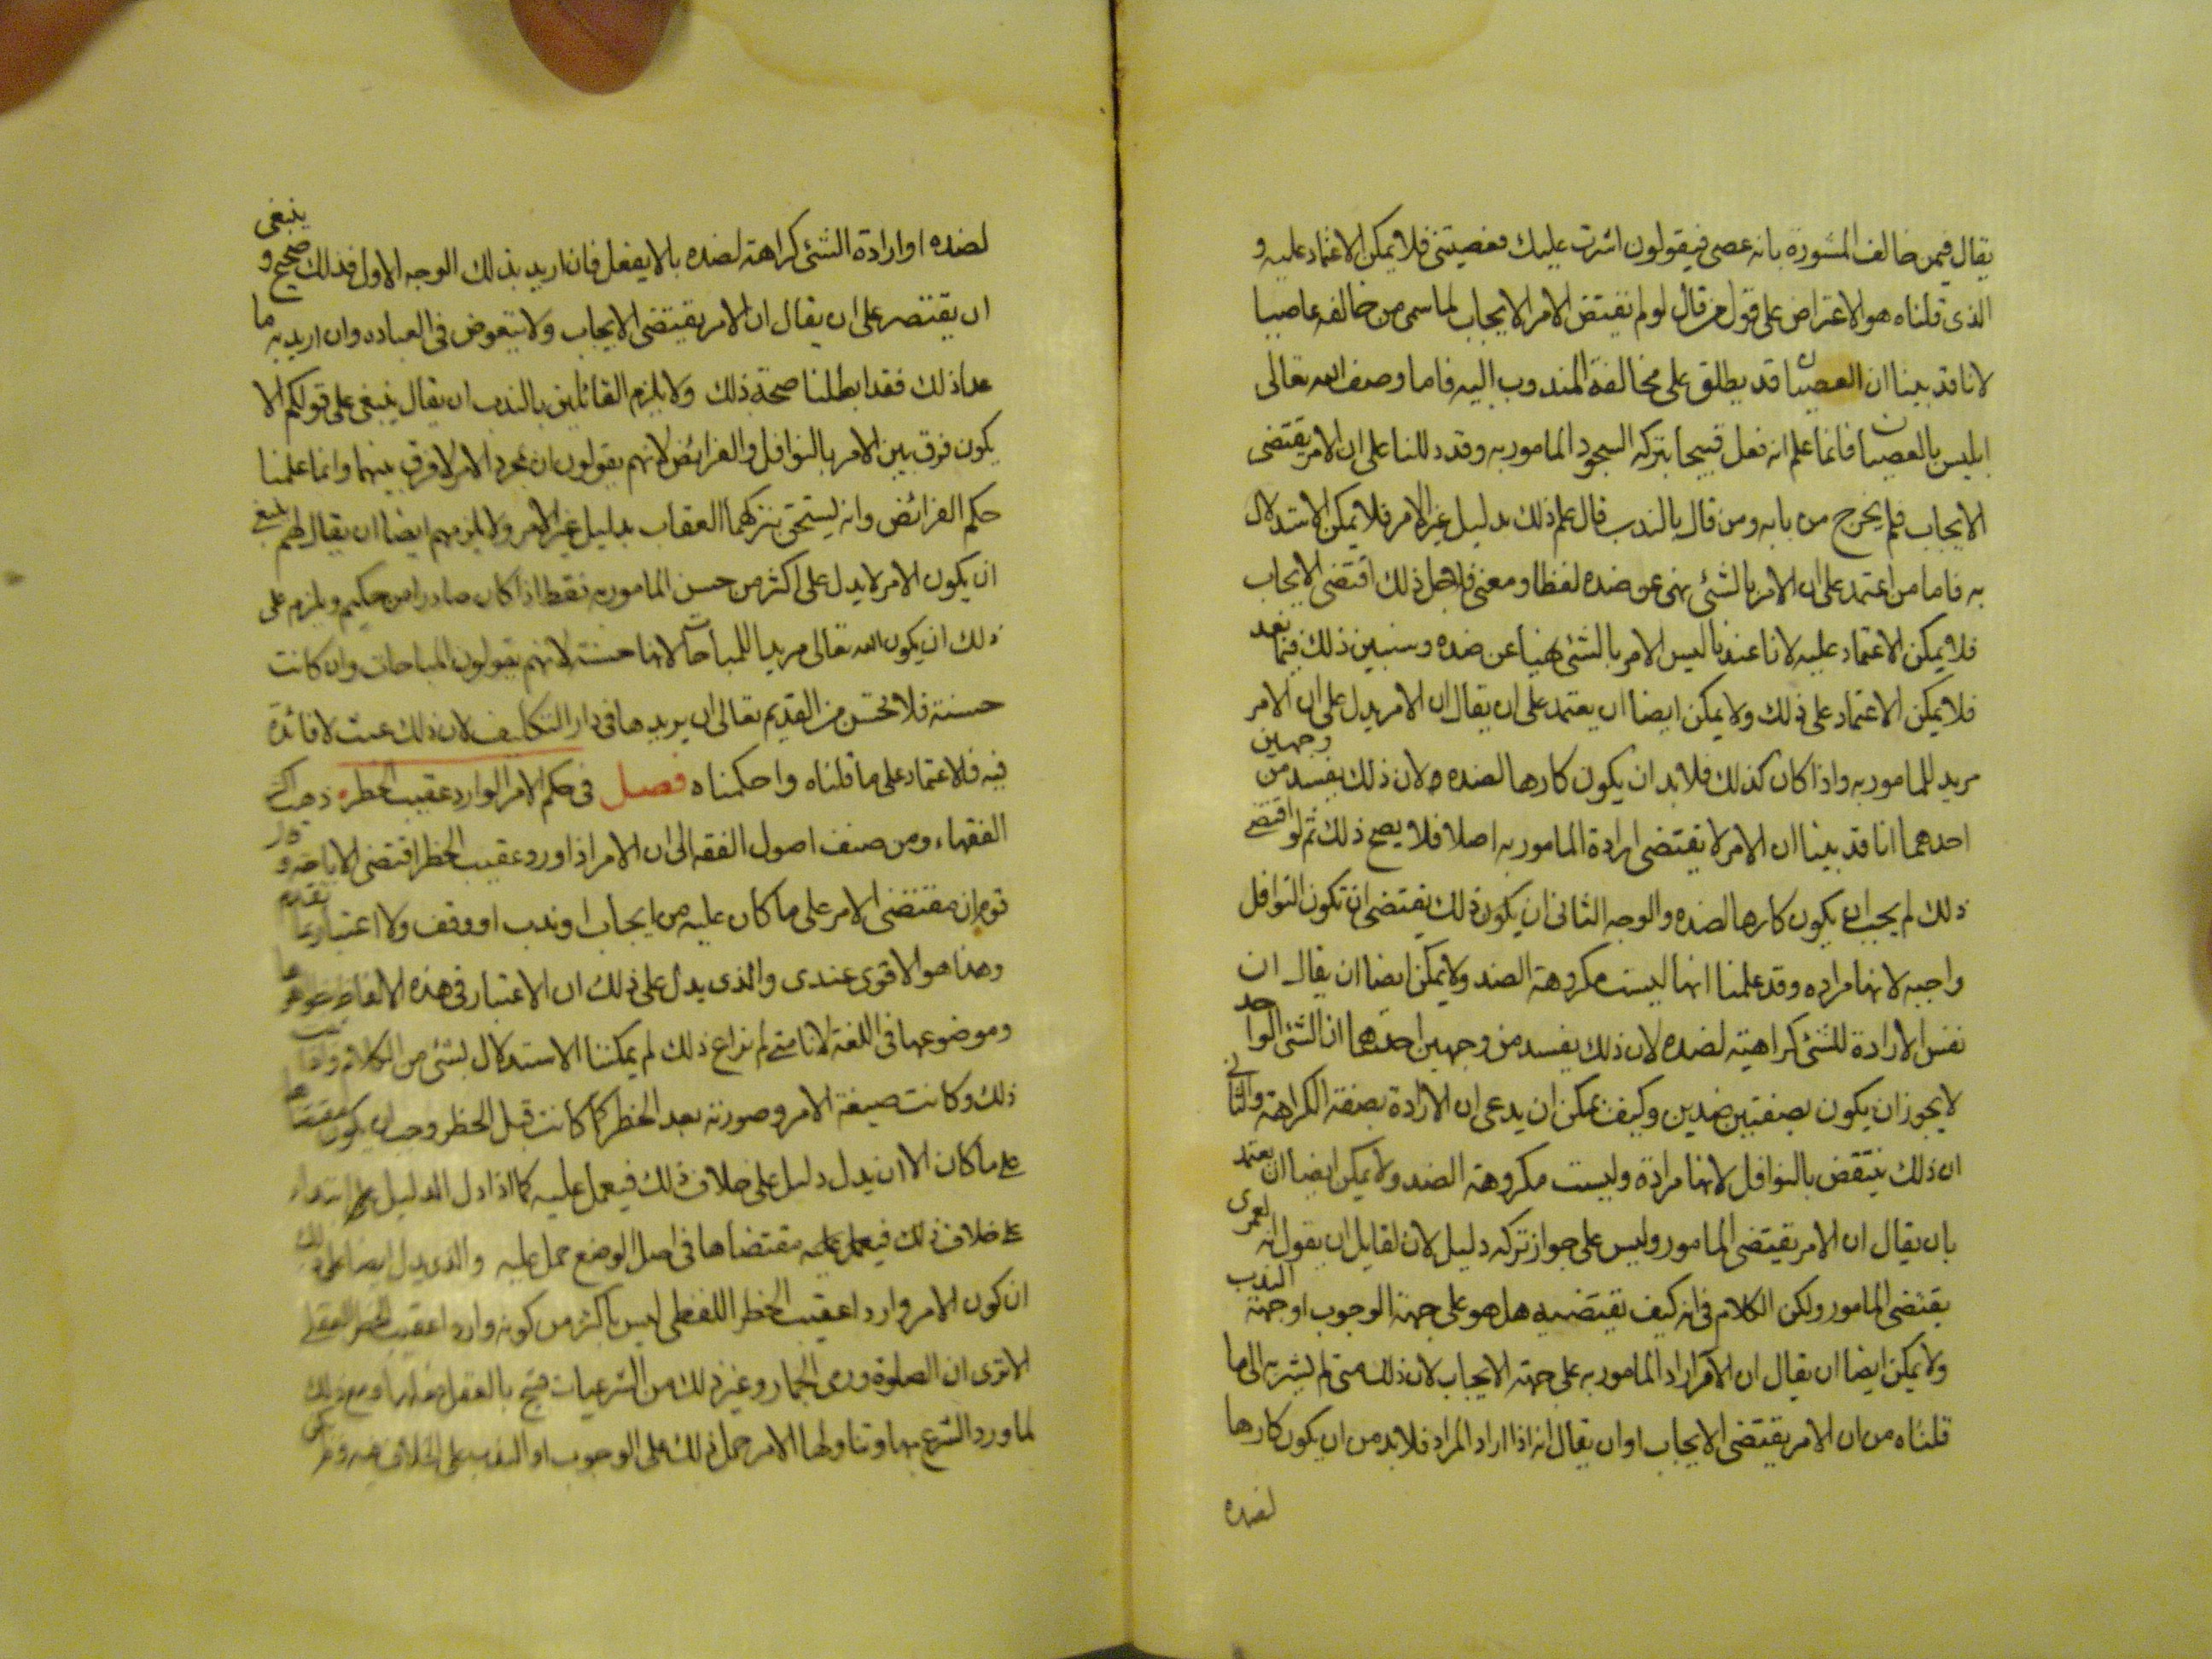 يقال فيمن خالف المشورة بانه عصى فيقولون اشرت عليك فعصيتنى فلا يمكن الاعتماد عليه و
الذى قلناه هو الاعتراض على قول من قال لو لم تقيتض الامر الايجاب لما سمى من خالفه عاصيا
لانا قد بينا ان العصيان قد يطلق على مخالفة المندوب اليه فاما وصف الله تعالى
ابليس بالعصيان فانما علم انه فعل قبيحا بتركه السجود المامور به وقد دللنا على ان الامر يقتضى
الايجاب فلم يخرج من بابه ومن قال بالندب قال علم ذلك بدليل غير الامر فلا يمكن الاستدلال
به فاما من اعتمد على ان الامر بالشئ نهى عن ضده لفظا ومعنى فلاجل ذلك اقتضى الايجاب
فلا يمكن الاعتماد عليه لانا عندنا ليس الامر بالشئ نهيا عن ضده وسنبين ذلك فيما بعد
فلا يمكن الاعتماد على ذلك ولا يمكن ايضا ان يعتمد على ان يقال ان الامر يدل على ان الامر
مريد للمامور به واذا كان كذلك فلا بد ان يكون كارها لضده لان ذلك يفسد من وجهين
احدهما انا قد بينا ان الامر لا يقتضى ارادة المامور به اصلا فلا يصح ذلك ثم لو اقتضى
ذلك لم يجب ان يكون كارها لضده والوجه الثانى ان يكون ذلك يقتضى ان تكون النوافل
واجبه لانها مراده وقد علمنا انها ليست مكروهة الضد ولا يمكن ايضا ان يقال ان
نفس الارادة للشئ كراهيته لضده لان ذلك يفسد من وجهين احدهما ان الشئ الواحد
لا يجوز ان يكون بصفتين ضدين وكيف يمكن ان يدعى ان الارادة بصفة الكراهة والثانى
ان ذلك ينتقض بالنوافل لانها مرادة وليست مكروهة الضد ولا يمكن ايضا ان يعتمد
بان يقال ان الامر يقتضى المامور وليس على جواز تركه دليل لان لقايل ان يقول انه لعمرى
يقتضى المامور ولكن الكلام فى انه كيف يقتضيه هل هو على جهة الوجوب او جهة الندب
ولا يمكن ايضا ان يقال ان الآمر اراد المامور به على جهة الايجاب لان ذلك متى لم يشر به الى ما
قلناه من ان الامر يقتضى الايجاب او ان يقال انه اذا اراد المراد فلا بد من ان يكون كارها
لضده
لضده او ارادة الشئ كراهة لضده بالا يفعل فان اريد بذلك الوجه الاول فذلك صحيح و ينبغى
ان يقتصر على ان يقال ان الامر يقيتضى الايجاب ولا يتعوض فى العباده وان اريد به ما
عدا ذلك فقد ابطلنا صحة ذلك ولا يلزم القائلين بالندب ان يقال ينبغى على قولكم الا
يكون فرق بين الامر بالنوافل والفرائض لانهم يقولون ان مجرد الامر لا فرق بينهما وانما علمنا
حكم الفرائض وانه يستحق بتركهما العقاب بدليل غير الامر ولا يلزمهم ايضا ان يقال لهم ينبغى
ان يكون الامر لا يدل على اكثر من حسن المامور به فقط اذا كان صادرا من حكيم ويلزم على
ذلك ان يكون الله تعالى مريدا للمباحات لانها حسنة لانهم يقولون المباحات وان كانت
حسنة فلا يحسن من القديم تعالى ان يريدها فى دار التكليف لان ذلك عبث لا فائدة
فيه فالاعتماد على ما قلناه واحكمناه فصل فى حكم الامر الوارد عقيب الحظر ذهب اكثر
الفقهاء ومن صنف اصول الفقه الى ان الامر اذا ورد عقيب الحظر اقتضى الاباحة و قال
قوم ان مقتضى الامر على ما كان عليه من ايجاب او ندب او وقف ولا اعتبار بما تقدم
وهذا هو الاقوى عندى والذى يدل على ذلك ان الاعتبار فى هذه الالفاظ بظواهرها
وموضوعها فى اللغة لانا متى لم نراع ذلك لم يمكننا الاستدلال بشئ من الكلام
ذلك وكانت صيغة الامر وصورته بعد الحظر كما كانت قبل الحظر وجب ان يكون مقتضاها
على ما كان الا ان يدل دليل على خلاف ذلك فيعمل عليه كما اذا دل الدليل على ابتداء
على خلاف ذلك فيعمل عليه مقتضاها فى اصل الوضع حمل عليه والذى يدل ايضا على ذلك
ان كون الامر واردا عقيب الحظر اللفظى ليس باكثر من كونه واردا عقيب الحظر العقلى
الا ترى ان الصلوة ورمى الجمار وغير ذلك من الشرعيات قبيح بالعقل فعلها ومع ذلك
لما ورد الشرع بها وتناولها الامر حمل ذلك على الوجوب او الندب على الخلاف فيه